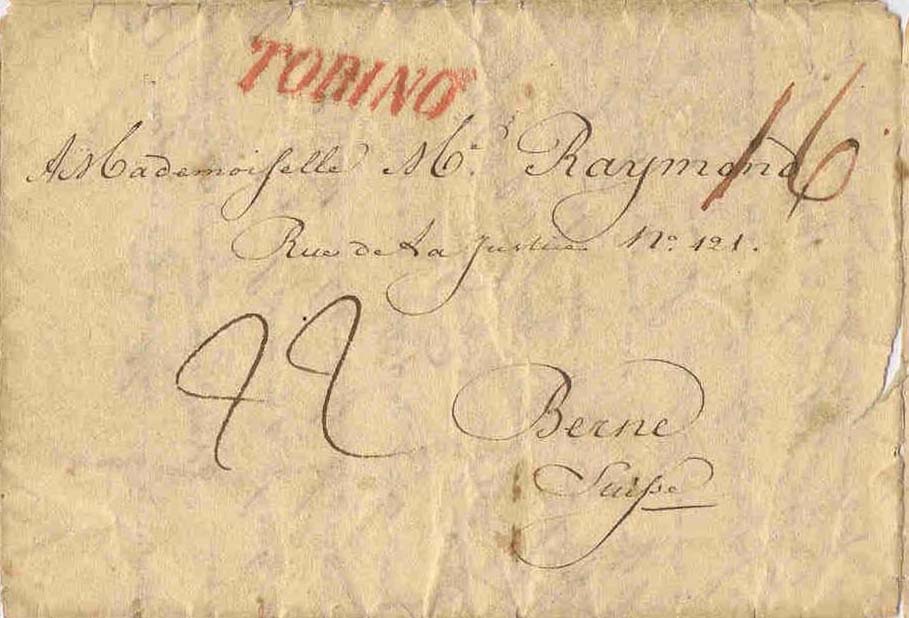 TORINO
A Mademoiselle M. Raymond
16
Rue de La Justice No. 121.
Berne
Suiſse